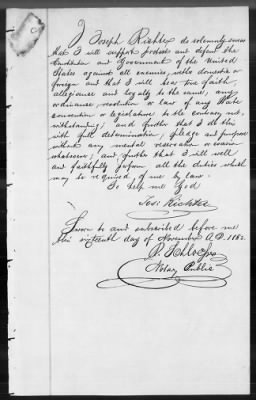 I Joseph Richter do solemnly swear
that I will support protect and defend the
Constitution and Government of the United
States against all enemies, whether domestic or
foreign and that I will bear true faith,
allegiance and loyalty to the same, any
ordinance, resolution or law of any State
convention or legislature to the contrary not,
withstanding; and further that I do this
with full determination, pledge and purpose
without any mental reservation or evasion
whatsoever; and further that I will well
and faithfully perform all the duties which
may be required of me by law.
So help me God
Jos: Richter
Sworn to and subscribed before me
this sixteenth day of November A.D. 1862.
Notary Public